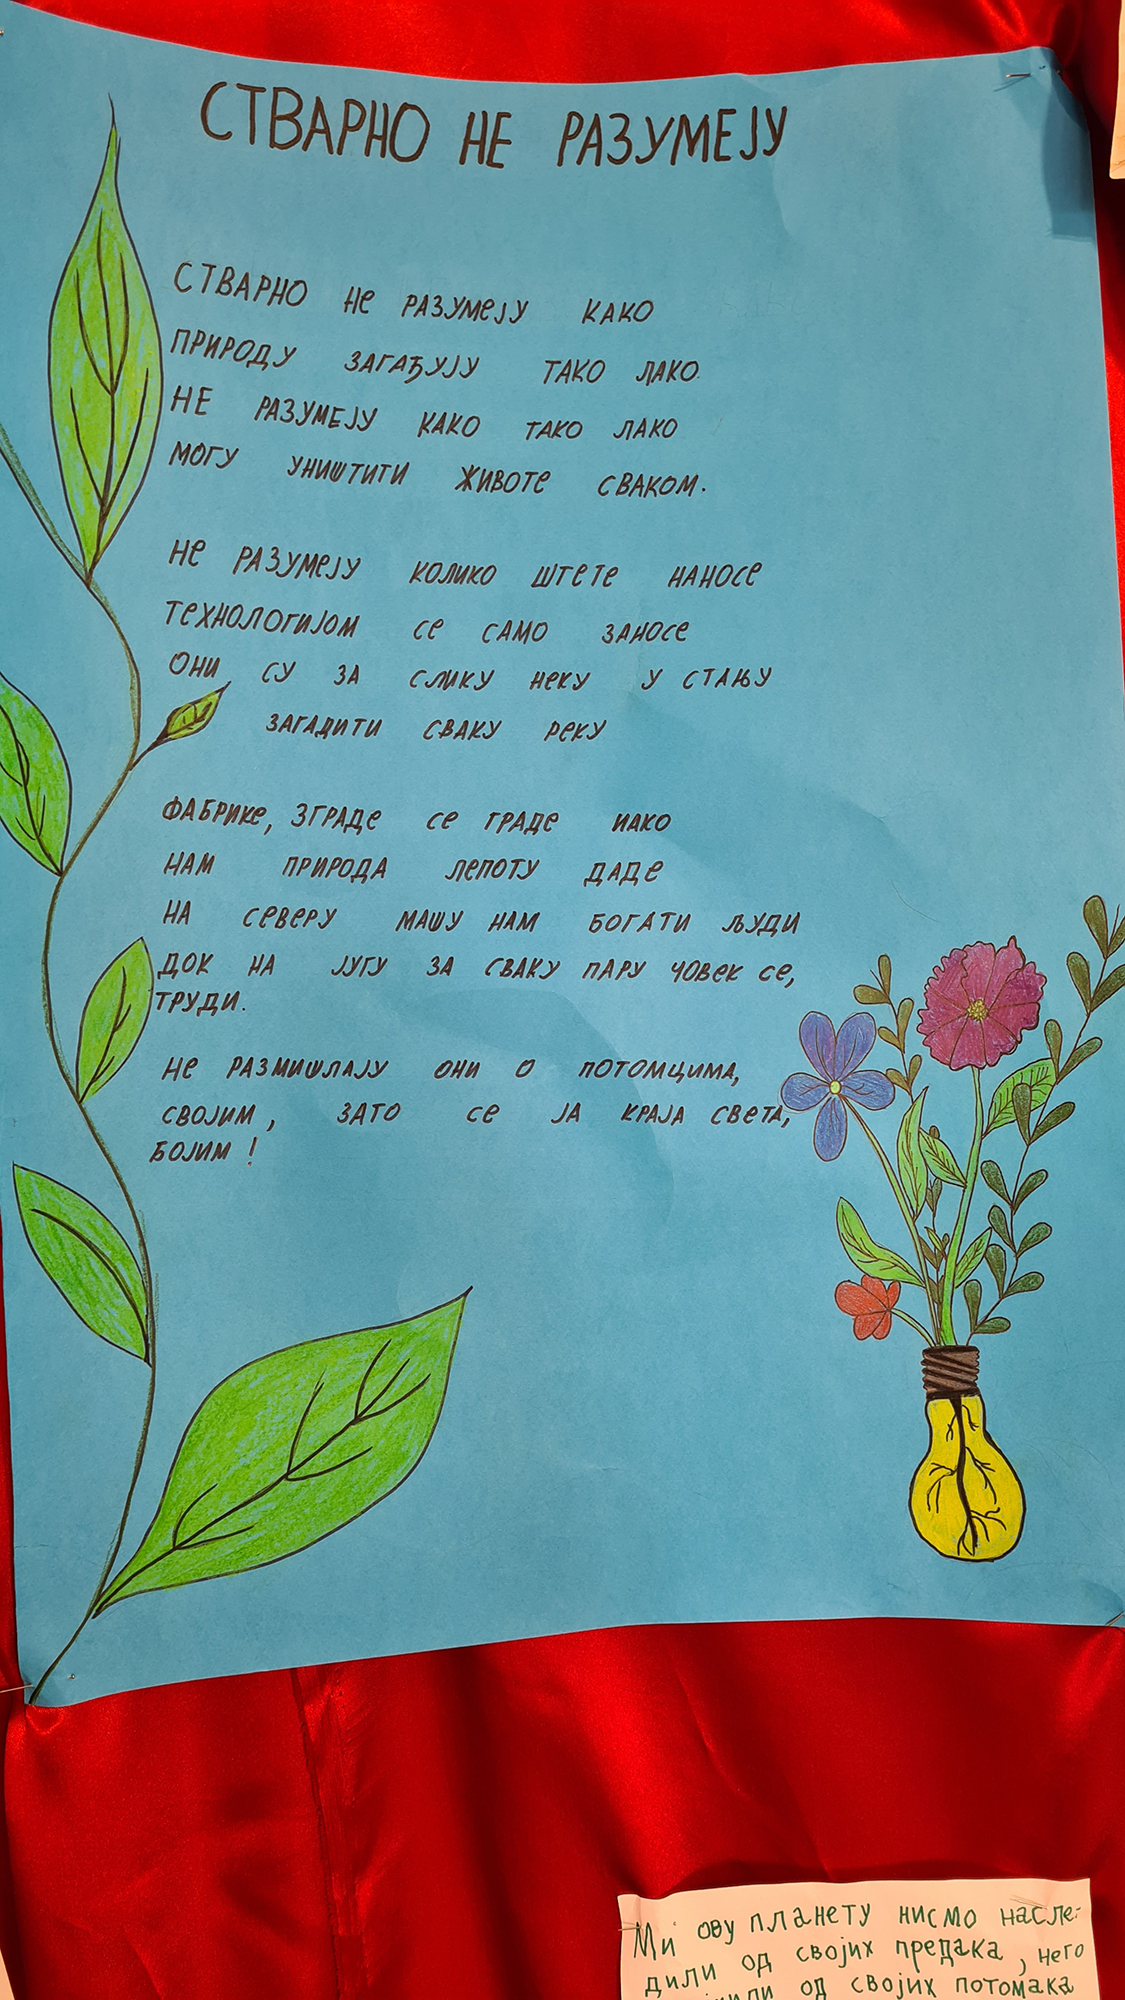 СТВАРНО НЕ РАЗУМЕЈУ
СТВАРНО НЕ РАЗУМЕЈУ КАКО
ПРИРОДУ ЗАГАЂУЈУ ТАКО ЛАКО.
НЕ РАЗУМЕЈУ КАКО ТАКО ЛАКО
МОГУ УНИШТИТИ ЖИВОТЕ СВАКОМ.
НЕ РАЗУМЕЈУ КОЛИКО ШТЕТЕ НАНОСЕ
ТЕХНОЛОГИЈОМ СЕ САМО ЗАНОСЕ
ОНИ СУ ЗА СЛИКУ НЕКУ У СТАЊУ
ЗАГАДИТИ СВАКУ РЕКУ
ФАБРИКЕ, ЗГРАДЕ СЕ ГРАДЕ ИАКО
НАМ ПРИРОДА ЛЕПОТУ ДАДЕ
НА СЕВЕРУ МАШУ НАМ БОГАТИ ЉУДИ
ДОК НА ЈУГУ ЗА СВАКУ ПАРУ ЧОВЕК СЕ,
ТРУДИ.
НЕ РАЗМИШЛАЈУ ОНИ О ПОТОМЦИМА,
СВОЈИМ, ЗАТО СЕ ЈА КРАЈА СВЕТА,
БОЈИМ!
Ми ову планету нисмо насле-
дили од својих предака, него
од својих потомака